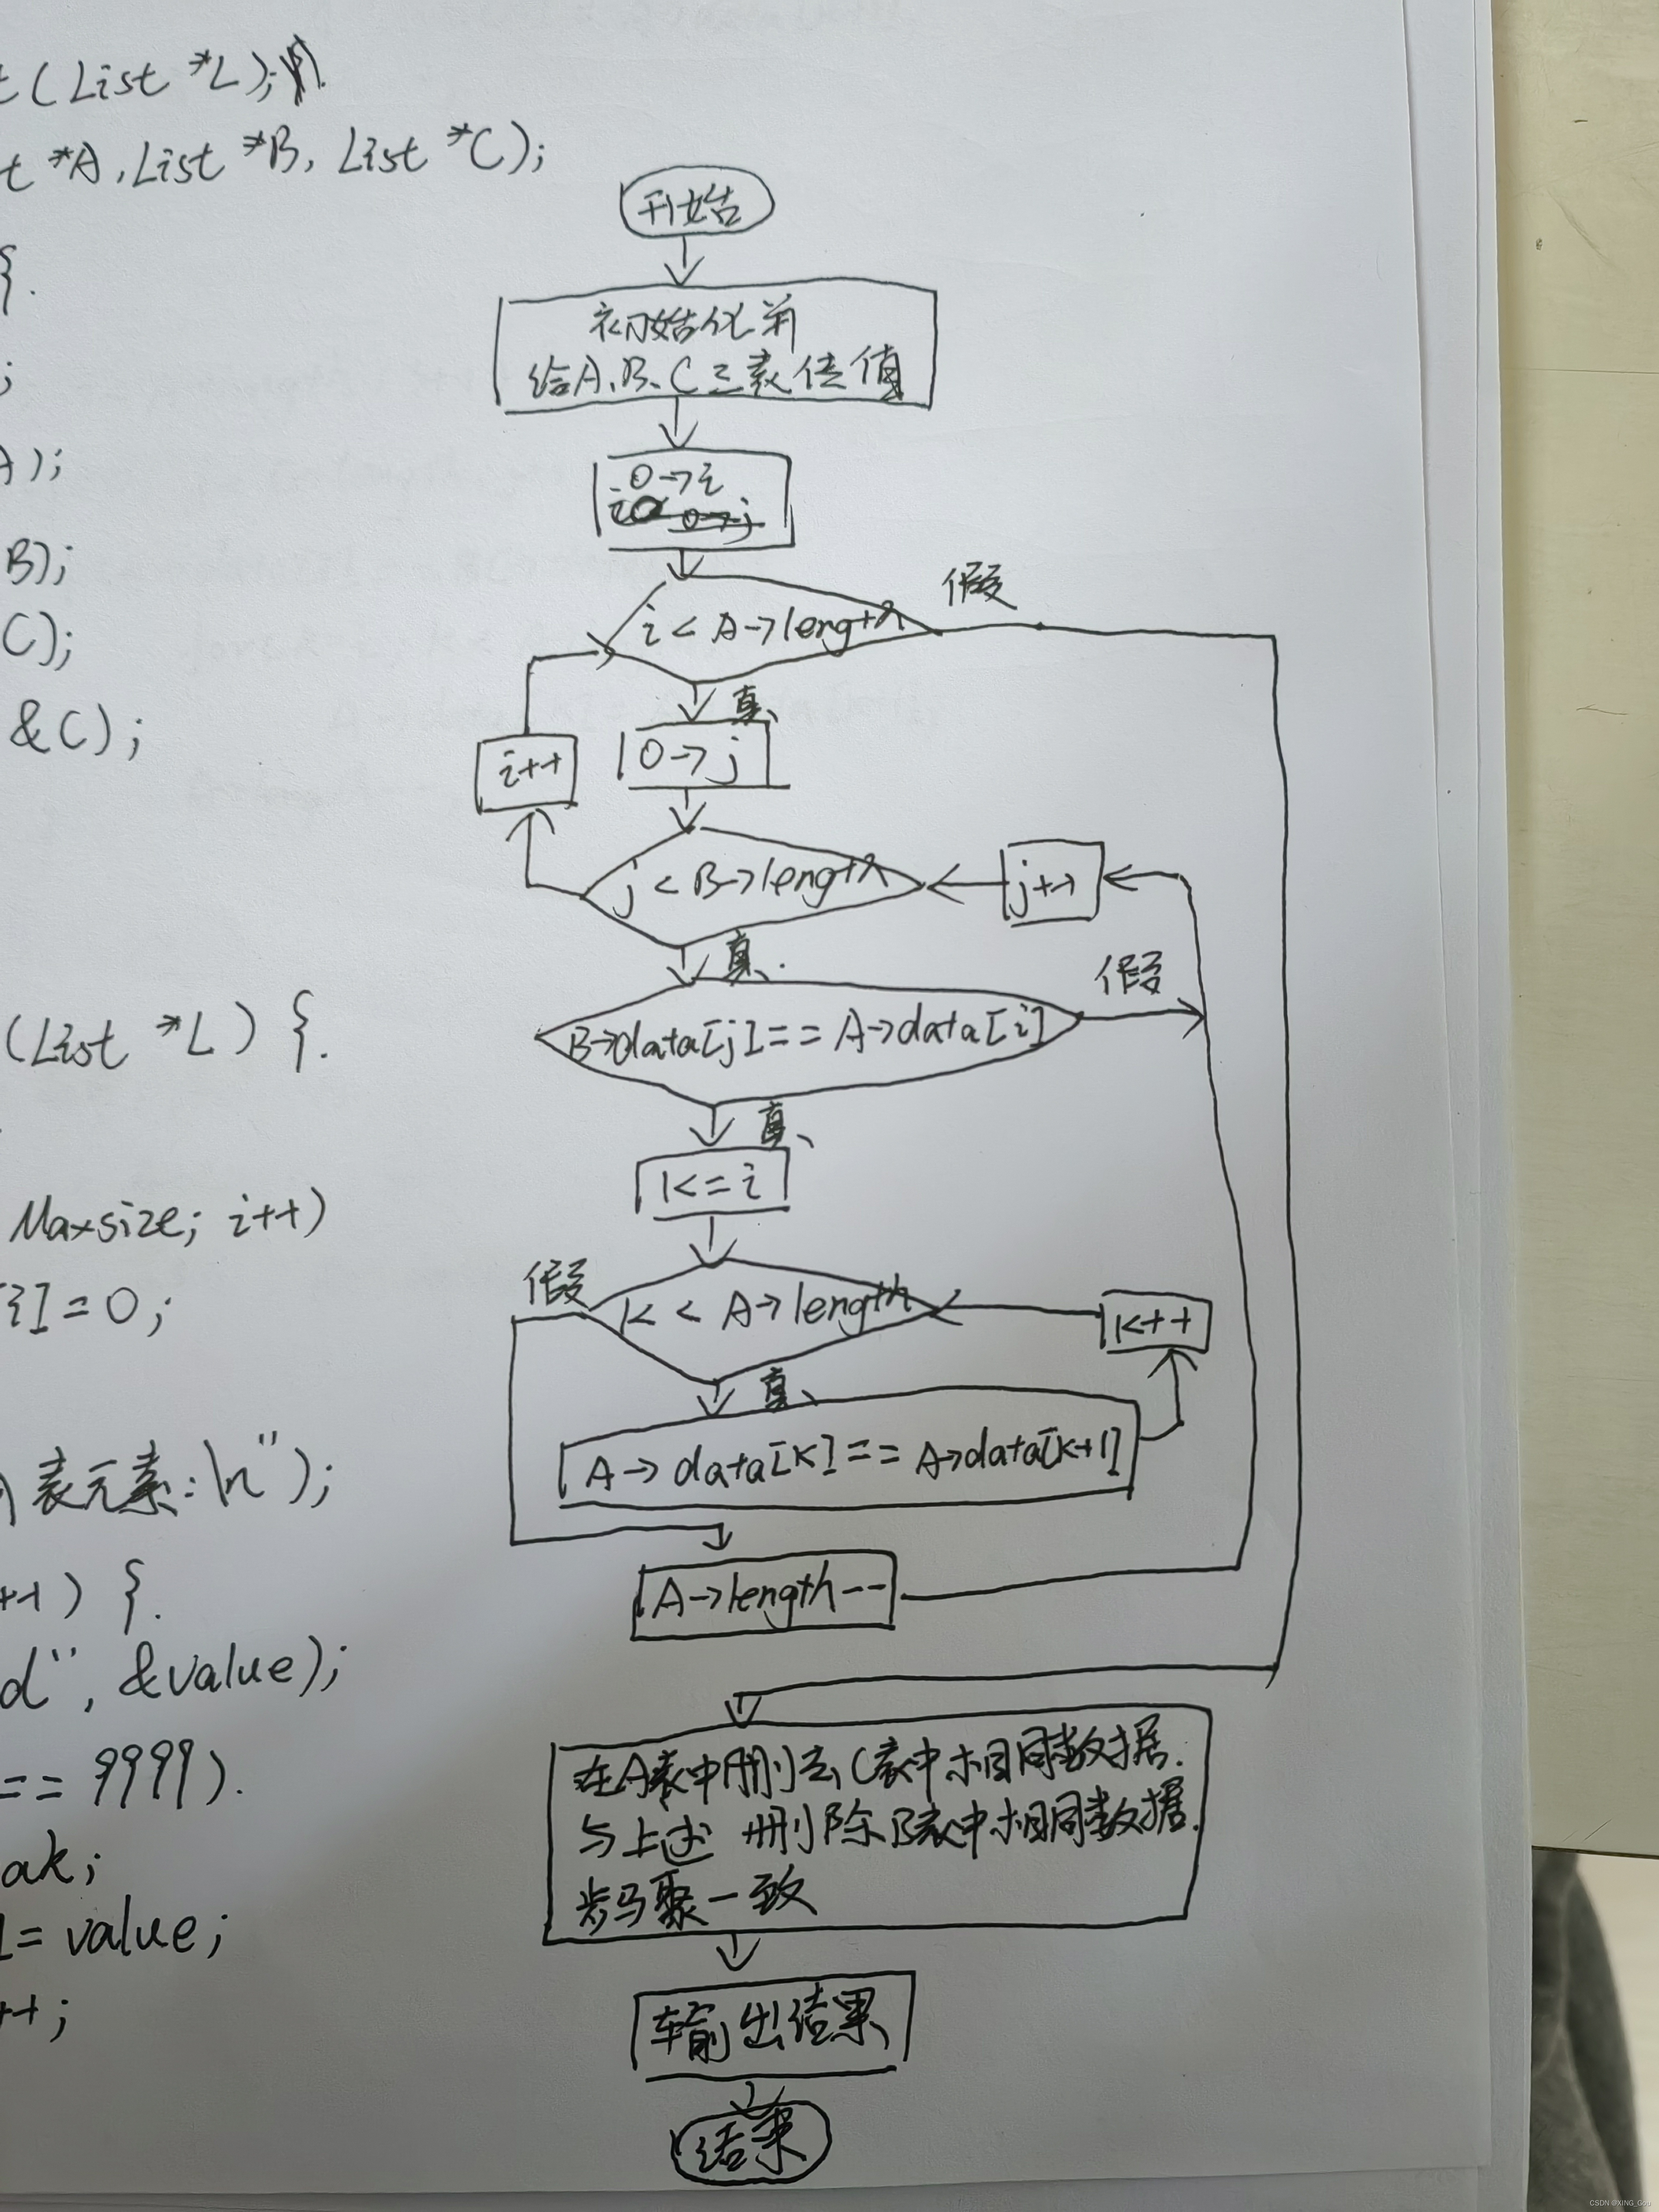 t(List *L);
t *A, List *B, List *C);
{.
;
A);
B);
C);
&C);
(List *L) {.
Maxsize; i++)
[i]=0;
表元素:\n");
++) {.
d", &value);
== 9999).
ak;
]= value;
++;
开始
初始化并
给A、B、C三表传值
0→i
0→j
i < A→length
假
真
i++
0→j
j < B→length
j++
真
B→data[j]== A→data[i]
假
真
k=i
假
k < A→length
k++
真
A→data[k]== A→data[k+1]
A→length--
在A表中删去C表中相同数据.
与上述 删除B表中相同数据.
步骤一致
输出结果
结束
CSDN @XING_Gou